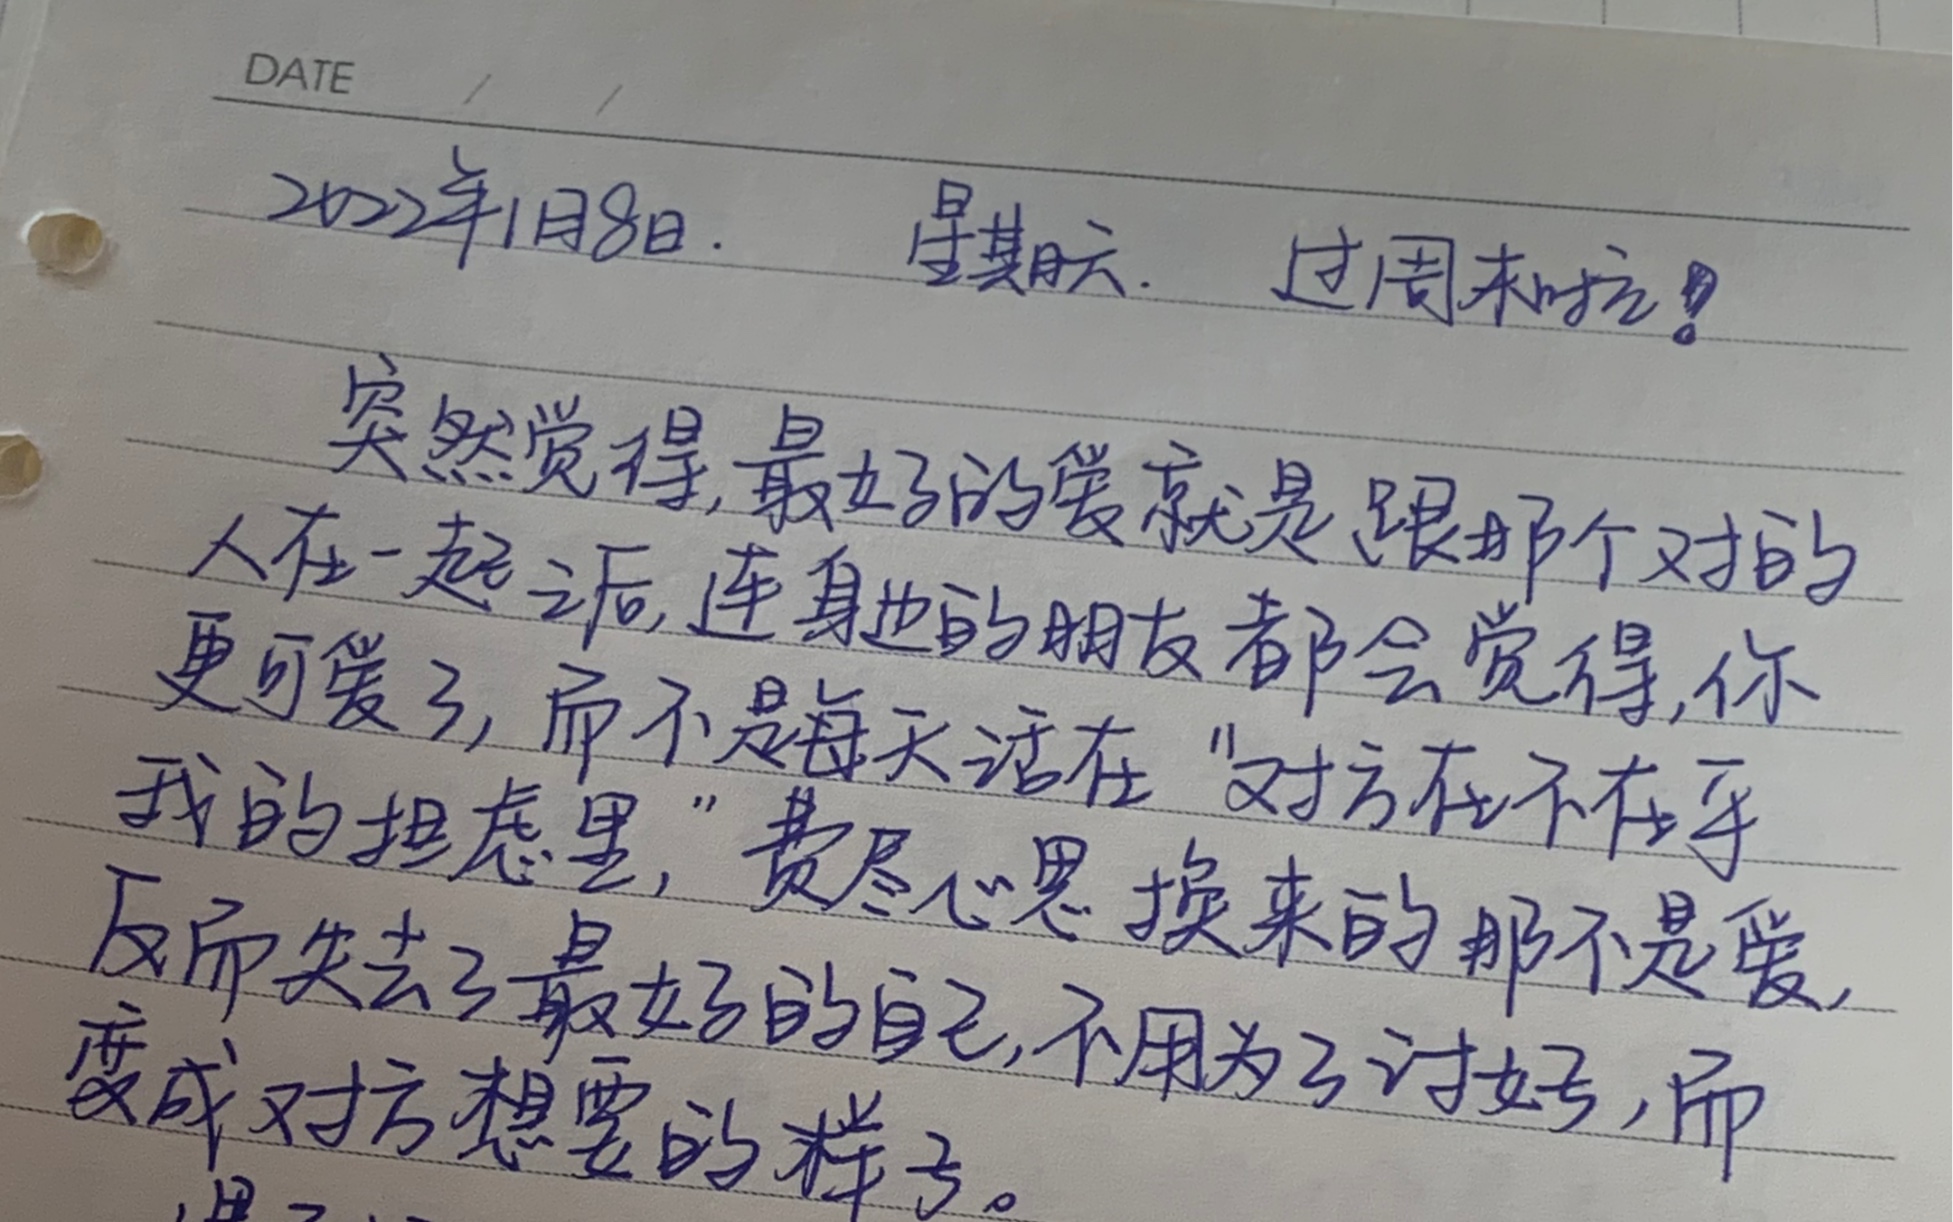 DATE / /
2022年1月8日. 星期六. 过周末啦!
突然觉得,最好的爱就是跟那个对的
人在一起之后,连身边的朋友都会觉得,你
更可爱了,而不是每天活在"对方在不在乎
我的担虑里,"费尽心思换来的那不是爱,
反而失去了最好的自己,不用为了讨好,而
变成对方想要的样子。